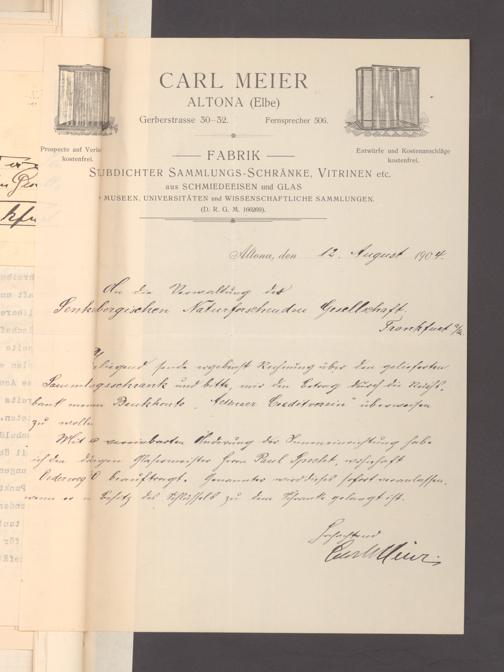 CARL MEIER
ALTONA (Elbe)
Gerberstrasse 30–32. Fernsprecher 506.
Prospecte auf Verla
kostenfrei.
Entwürfe und Kostenanschläge
kostenfrei.
FABRIK
SUBDICHTER SAMMLUNGS-SCHRÄNKE, VITRINEN etc.
aus SCHMIEDEEISEN und GLAS
MUSEEN, UNIVERSITÄTEN und WISSENSCHAFTLICHE SAMMLUNGEN.
(D. R. G. M. 160269).
Altona, den 12. August 1904.
An die Verwaltung der
Senkebergischen Naturforschenden Gesellschaft
Frankfurt a/M
sende ergebenst Rechnung über den gelieferten
Sammlungsschrank und bitte, mir den Betrag durch die Reichs-
bank meinem Bankkonto „Altonaer Creditverein" überweisen
zu wollen.
Mit vereinbarten Änderung der Inneneinrichtung habe
ich den dortigen Glasermeister Herrn Paul Specht, wohnhaft
Oederweg beauftragt. Genannter wird dieses sofort veranlassen,
wenn er in Besitz des Schlüssels zu dem Schranke gelangt ist.
Hochachtend
Carl Meier.